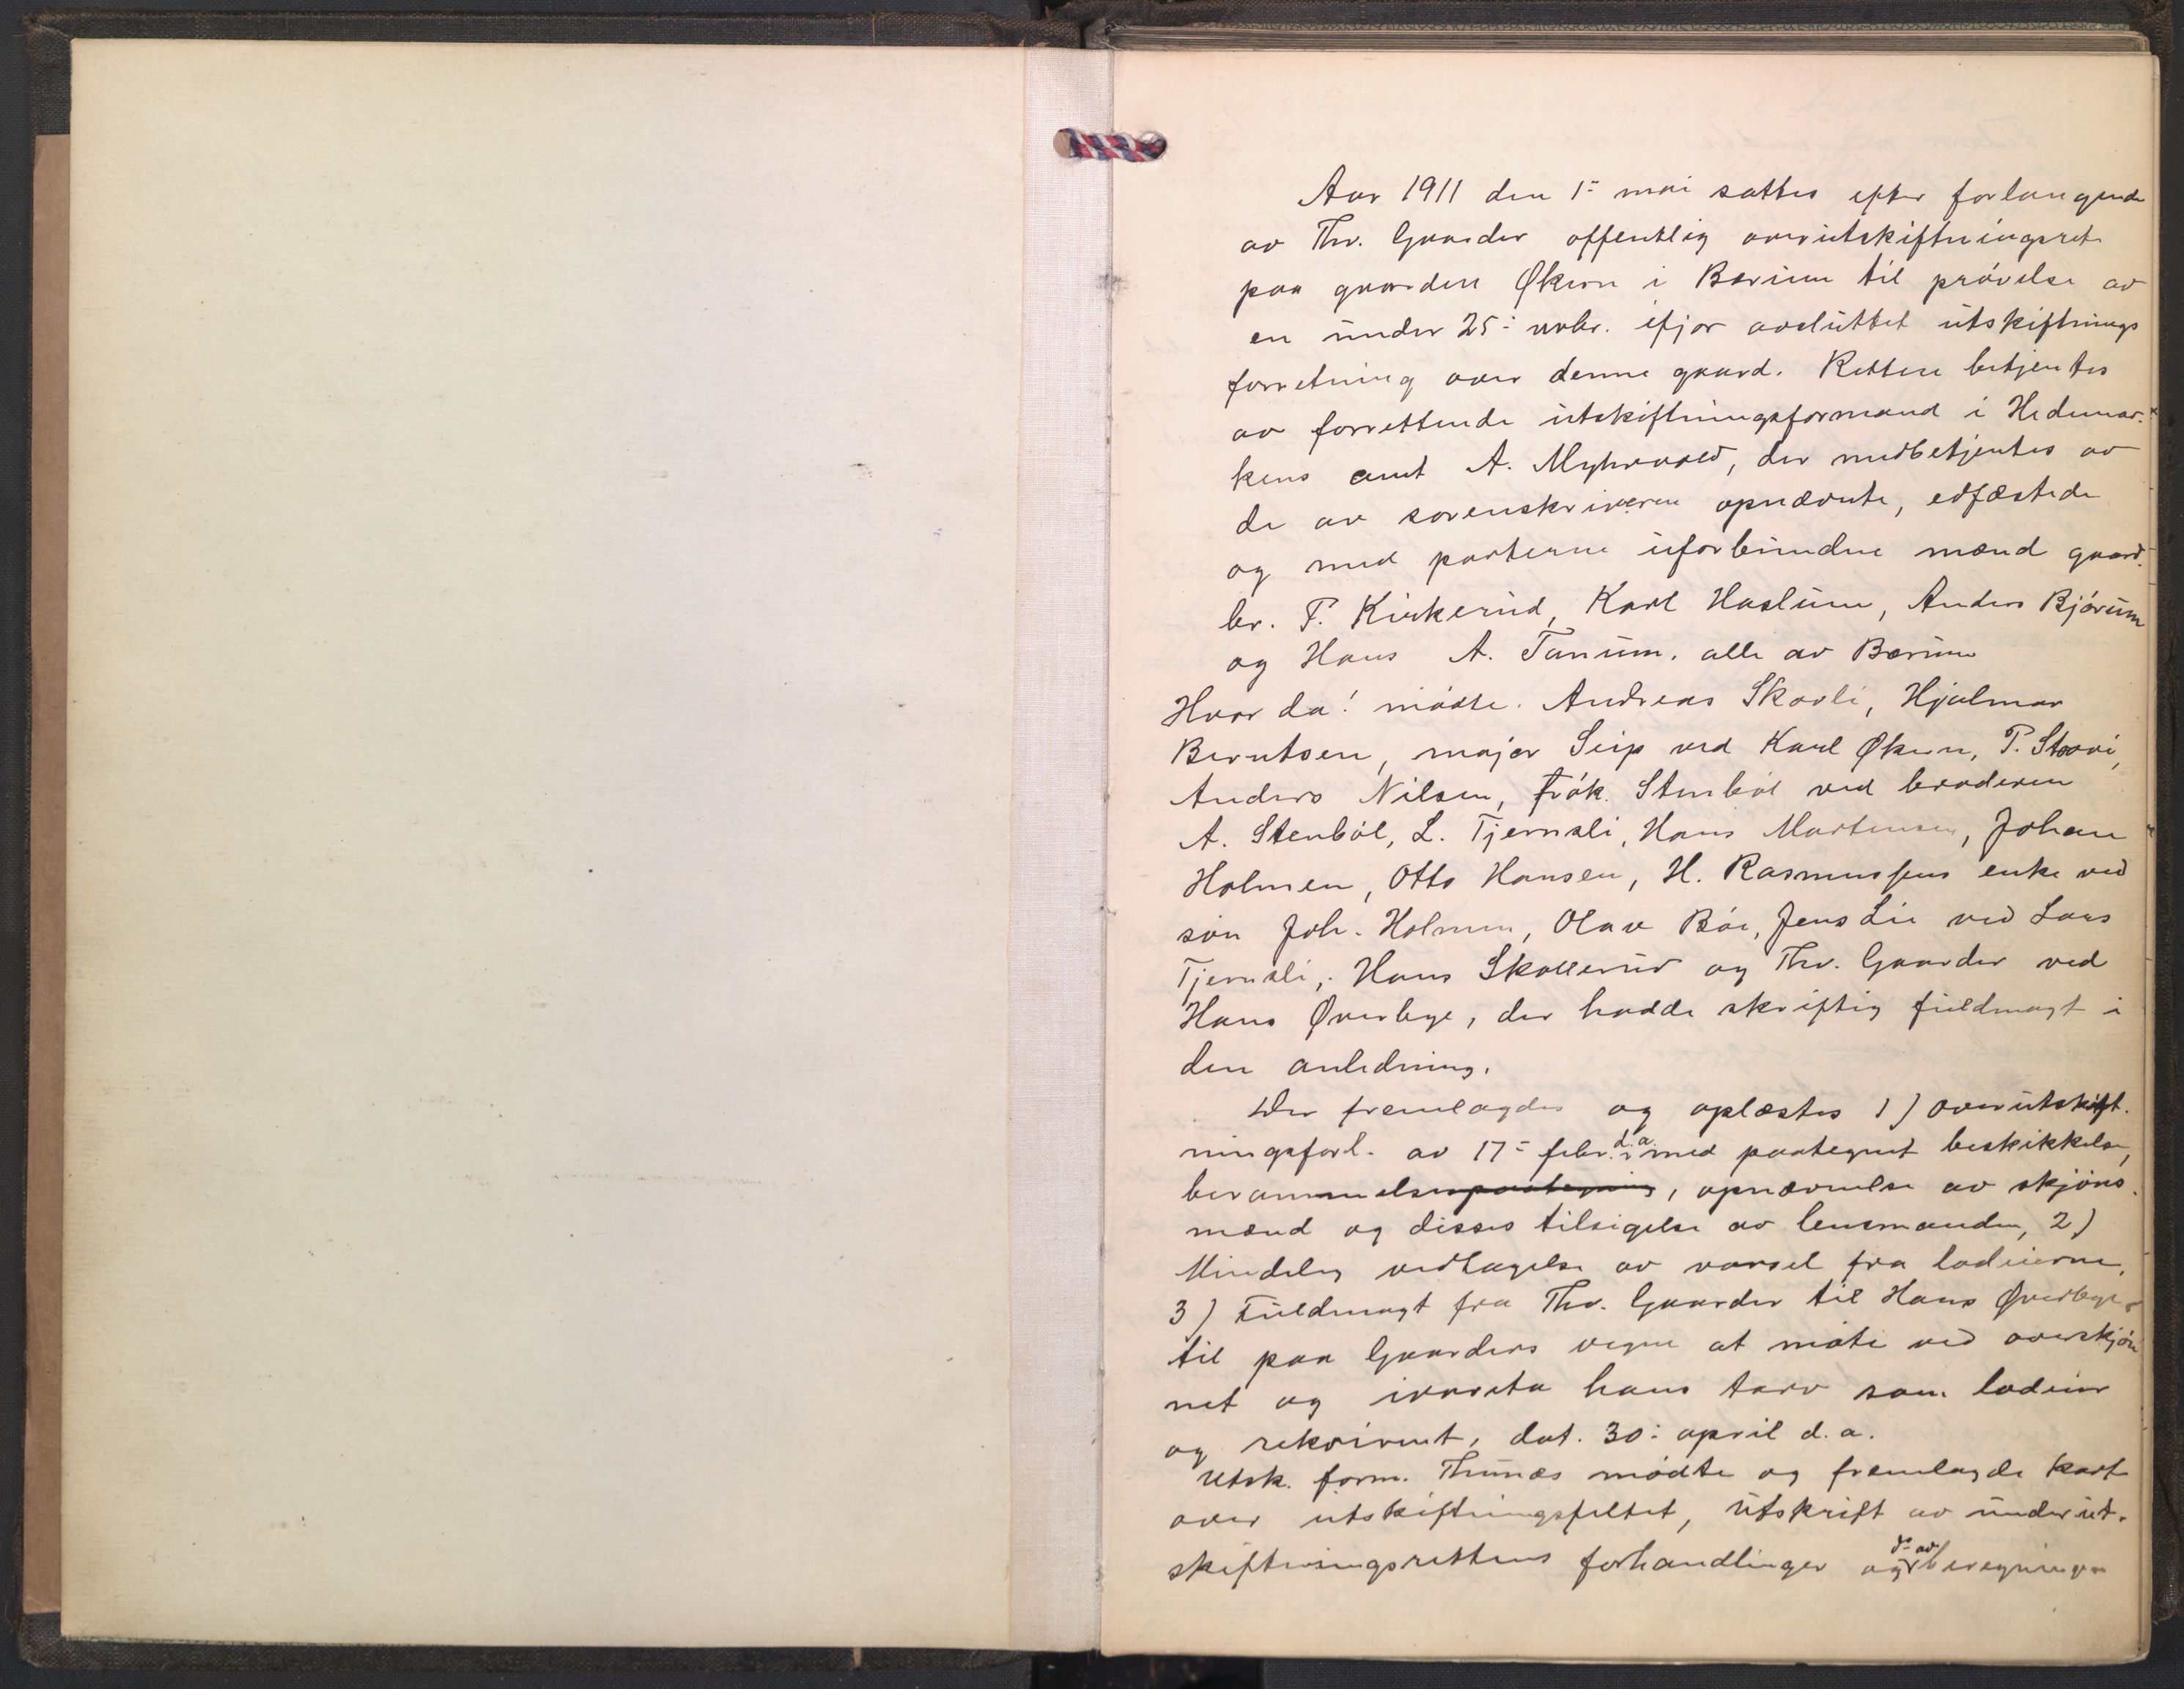 Aar 1911 den 1- mai sattes efter forlangende
av Thv. Gaarder offentlig overutskiftningsret
paa gaarden Økern i Bærum til prövelse av
en under 25- novbr. ifjor avsluttet utskiftnings
forretning over denne gaard. Retten betjentes
av forrettende utskiftningsformand i Hedemar-
kens amt A. Myhrvold, der medbetjentes av
de av sorenskriveren opnævnte, edfæstede
og med parterne uforbundne mænd gaard-
br. P. Kirkerud, Karl Haslum, Anders Bjørum
og Hans A. Tanum. alle av Bærum
Hvor da! mødte. Andreas Skovli, Hjalmar
Berntsen, major Seip ved Karl Økern, P. Stovi,
Anders Nilsen, Frøk. Stenbøl ved broderen
A. Stenbøl, L. Tjernsli, Hans Martinsen, Johan
Holmen, Otto Hansen, H. Rasmussens enke ved
søn Joh. Holmen, Olav Bøe, Jens Lie ved Lars
Tjernsli, Hans Skollerud og Thv. Gaarder ved
Hans Øverbye, der hadde skriftig fuldmagt i
den anledning.
Der fremlagdes og oplæstes 1) overutskift-
ningsforl. av 17- febr. d.a. med paategnet beskikkelse,
berammelsespaategning, opnævnelse av skjøns-
mænd og disses tilsigelse av lensmanden, 2)
Mindelig vedtagelse av varsel fra lodeierne,
3) Fuldmagt fra Thv. Gaarder til Hans Øverbye
til paa Gaarders vegne at møte ved overskjøn
net og ivareta hans tarv som lodeier
og rekvirent, dat. 30- april d.a.
Utsk. form. Thunæs mødte og fremlagde kart
over utskiftningsfeltet, utskrift av underut-
skiftningsrettens forhandlinger og do av beregningen